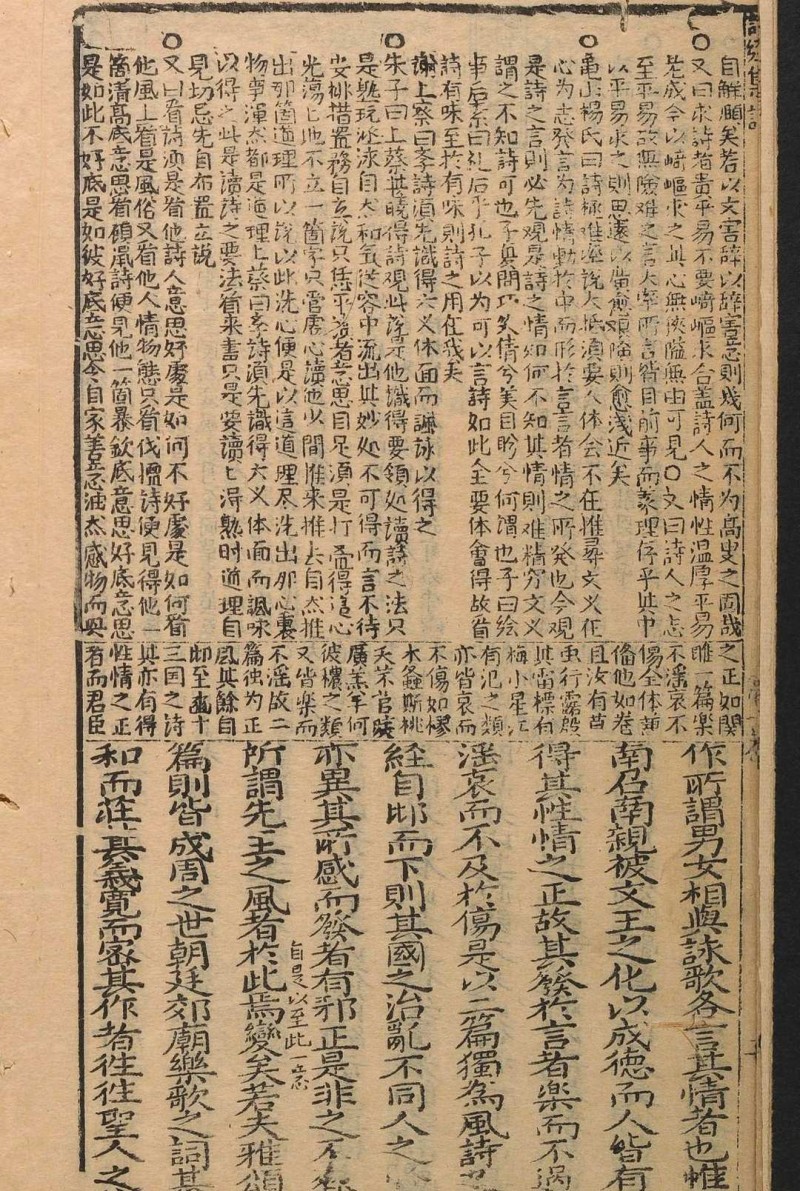 自解頤矣若以文害辞以辞害意則幾何而不为高叟之固哉
又曰求詩者貴平易不要﨑嶇求合盖詩人之情性温厚平易
老成今以﨑嶇求之其心無狹隘無由可見〇又曰詩人之志
至平易故無險难之言大率所言皆目前事而義理存乎其中
以平易求之則思逺以廣愈艰險則愈浅近矣
亀山楊氏曰詩極难卒說大抵湏要人体会不在推尋文义在
心为志發言为詩情動於中而形於言言者情之所發也今观
是詩之言則必先观是詩之情如何不知其情則难精穷文义
謂之不知詩可也子夏問巧笑倩兮美目盼兮何謂也子曰绘
事后素曰礼后乎孔子以为可以言詩如此全要体會得故看
詩有味至於有味則詩之用在我矣
謝上蔡曰学詩湏先識得六义体面而諷詠以得之
朱子曰上蔡其曉得詩观此說是他識得要領処讀詩之法只
是熟玩泳自然和気從容中流出其妙処不可得而言不待
安排措置務自立說只恁平者意思自足湏是打疊得这心
光蕩〻地不立一箇字只管虚心讀他少間推来推去自然推
出那箇道理所以說以此洗心便是以這道理尽洗出那心裏
物事渾然都是道理上蔡曰学詩湏先識得六义体面而諷味
以得之此是讀詩之要法看来書只是要讀〻得熟时道理自
見切忌先自布置立說
又曰看詩湏是看他詩人意思好處是如何不好處是如何看
他風土看是風俗又看他人情物態只看伐檀詩便見得他一
箇清高底意思看碩鼠詩便見他一箇暴歛底意思好底意思
是如此不好底是如彼好底意思令自家善意油然感物而興
之正如関
雎一篇樂
不滛哀不
傷全体
偹他如卷
且汝有
虫行露殷
其雷標有
梅小星江
有氾之類
亦皆哀而
不傷如樛
木螽斯桃
夭芣苢
廣羔羊何
彼穠之類
又皆楽而
不滛故二
篇独为正
風其餘自
邶至豳十
三囯之詩
其亦有得
性情之正
者而君臣
作所謂男女相與詠歌各言其情者也惟
南召南親被文王之化以成徳而人皆有
得其性情之正故其發於言者楽而不過
滛哀而不及於傷是以二篇獨為風詩
経自邶而下則其國之治亂不同人之
亦異其所感而發者有邪正是非之不
自是以至此一意
所謂先王之風者於此焉變矣若夫雅頌
篇則皆成周之世朝廷郊廟樂歌之詞其
和而荘其義寛而宻其作者徃徃聖人之